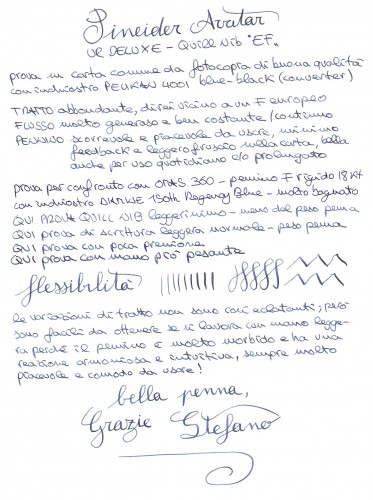 Pineider Avatar
UR DELUXE - Quill Nib "EF"
prova in carta comune da fotocopia di buona qualità
con inchiostro PELIKAN 4001 blue-black (converter)
TRATTO abbondante, direi vicino a un F europeo
FLUSSO molto generoso e ben costante / continuo
PENNINO scorrevole e piacevole da usare, minimo
feedback e leggero fruscio nella carta, bella
anche per uso quotidiano e/o prolungato
prova per confronto con OMAS 360 - pennino F rigido 18 Kt
con inchiostro DIAMINE 150th Regency Blue - molto bagnato
QUI PROVA QUILL NIB leggerissimo - meno del peso penna
QUI prova di scrittura leggera normale - peso penna
QUI prova con poca pressione
QUI prova con mano più pesante
flessibilità
le variazioni di tratto non sono così eclatanti; però
sono facili da ottenere se si lavora con mano legge-
ra perché il pennino è molto morbido e ha una
reazione armoniosa e intuitiva, sempre molto
piacevole e comodo da usare!
bella penna,
Grazie Stefano